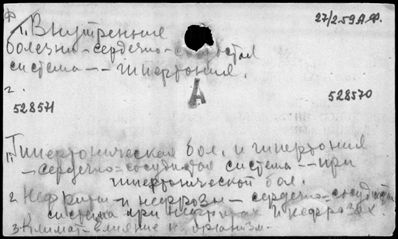 27/2.59 А.Ф.
1. Внутренние
болезни – сердечно-сосудистая
система -- гипертония.
2.
А
528571
528570
1. Гипертоническая бол. и гипертония
– сердечно-сосудистая система -- при
гипертонической бол.
2. Нефриты и нефрозы – сердечно-сосудистая
система при нефритах и нефрозах.
3. Климат – влияние на организм.